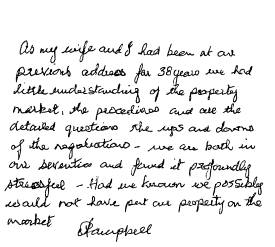 As my wife and I had been at our
previous address for 38 years we had
little understanding of the property
market, the procedures and all the
detailed questions the ups and downs
of the negotiations - we are both in
our seventies and found it profoundly
stressful - Had we known we possibly
would not have put our property on the
market
Campbell